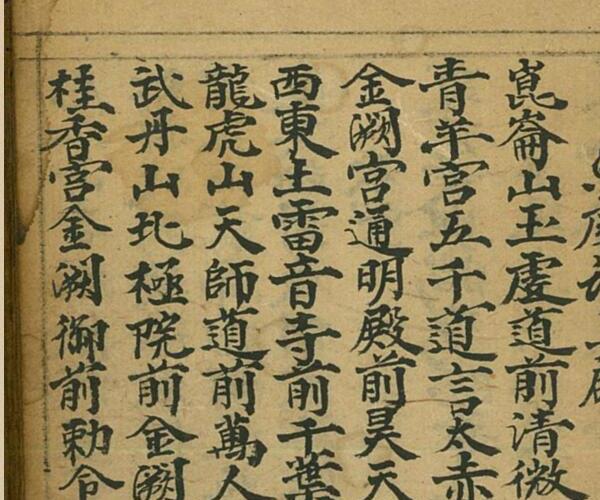 崑崙山玉虛道前清微
青羊宮五千道言太赤
金闕宮通明殿前昊天
西東土雷音寺前千葉
龍虎山天師道前萬人
武丹山北極院前金闕
桂香宮金闕御前勅令